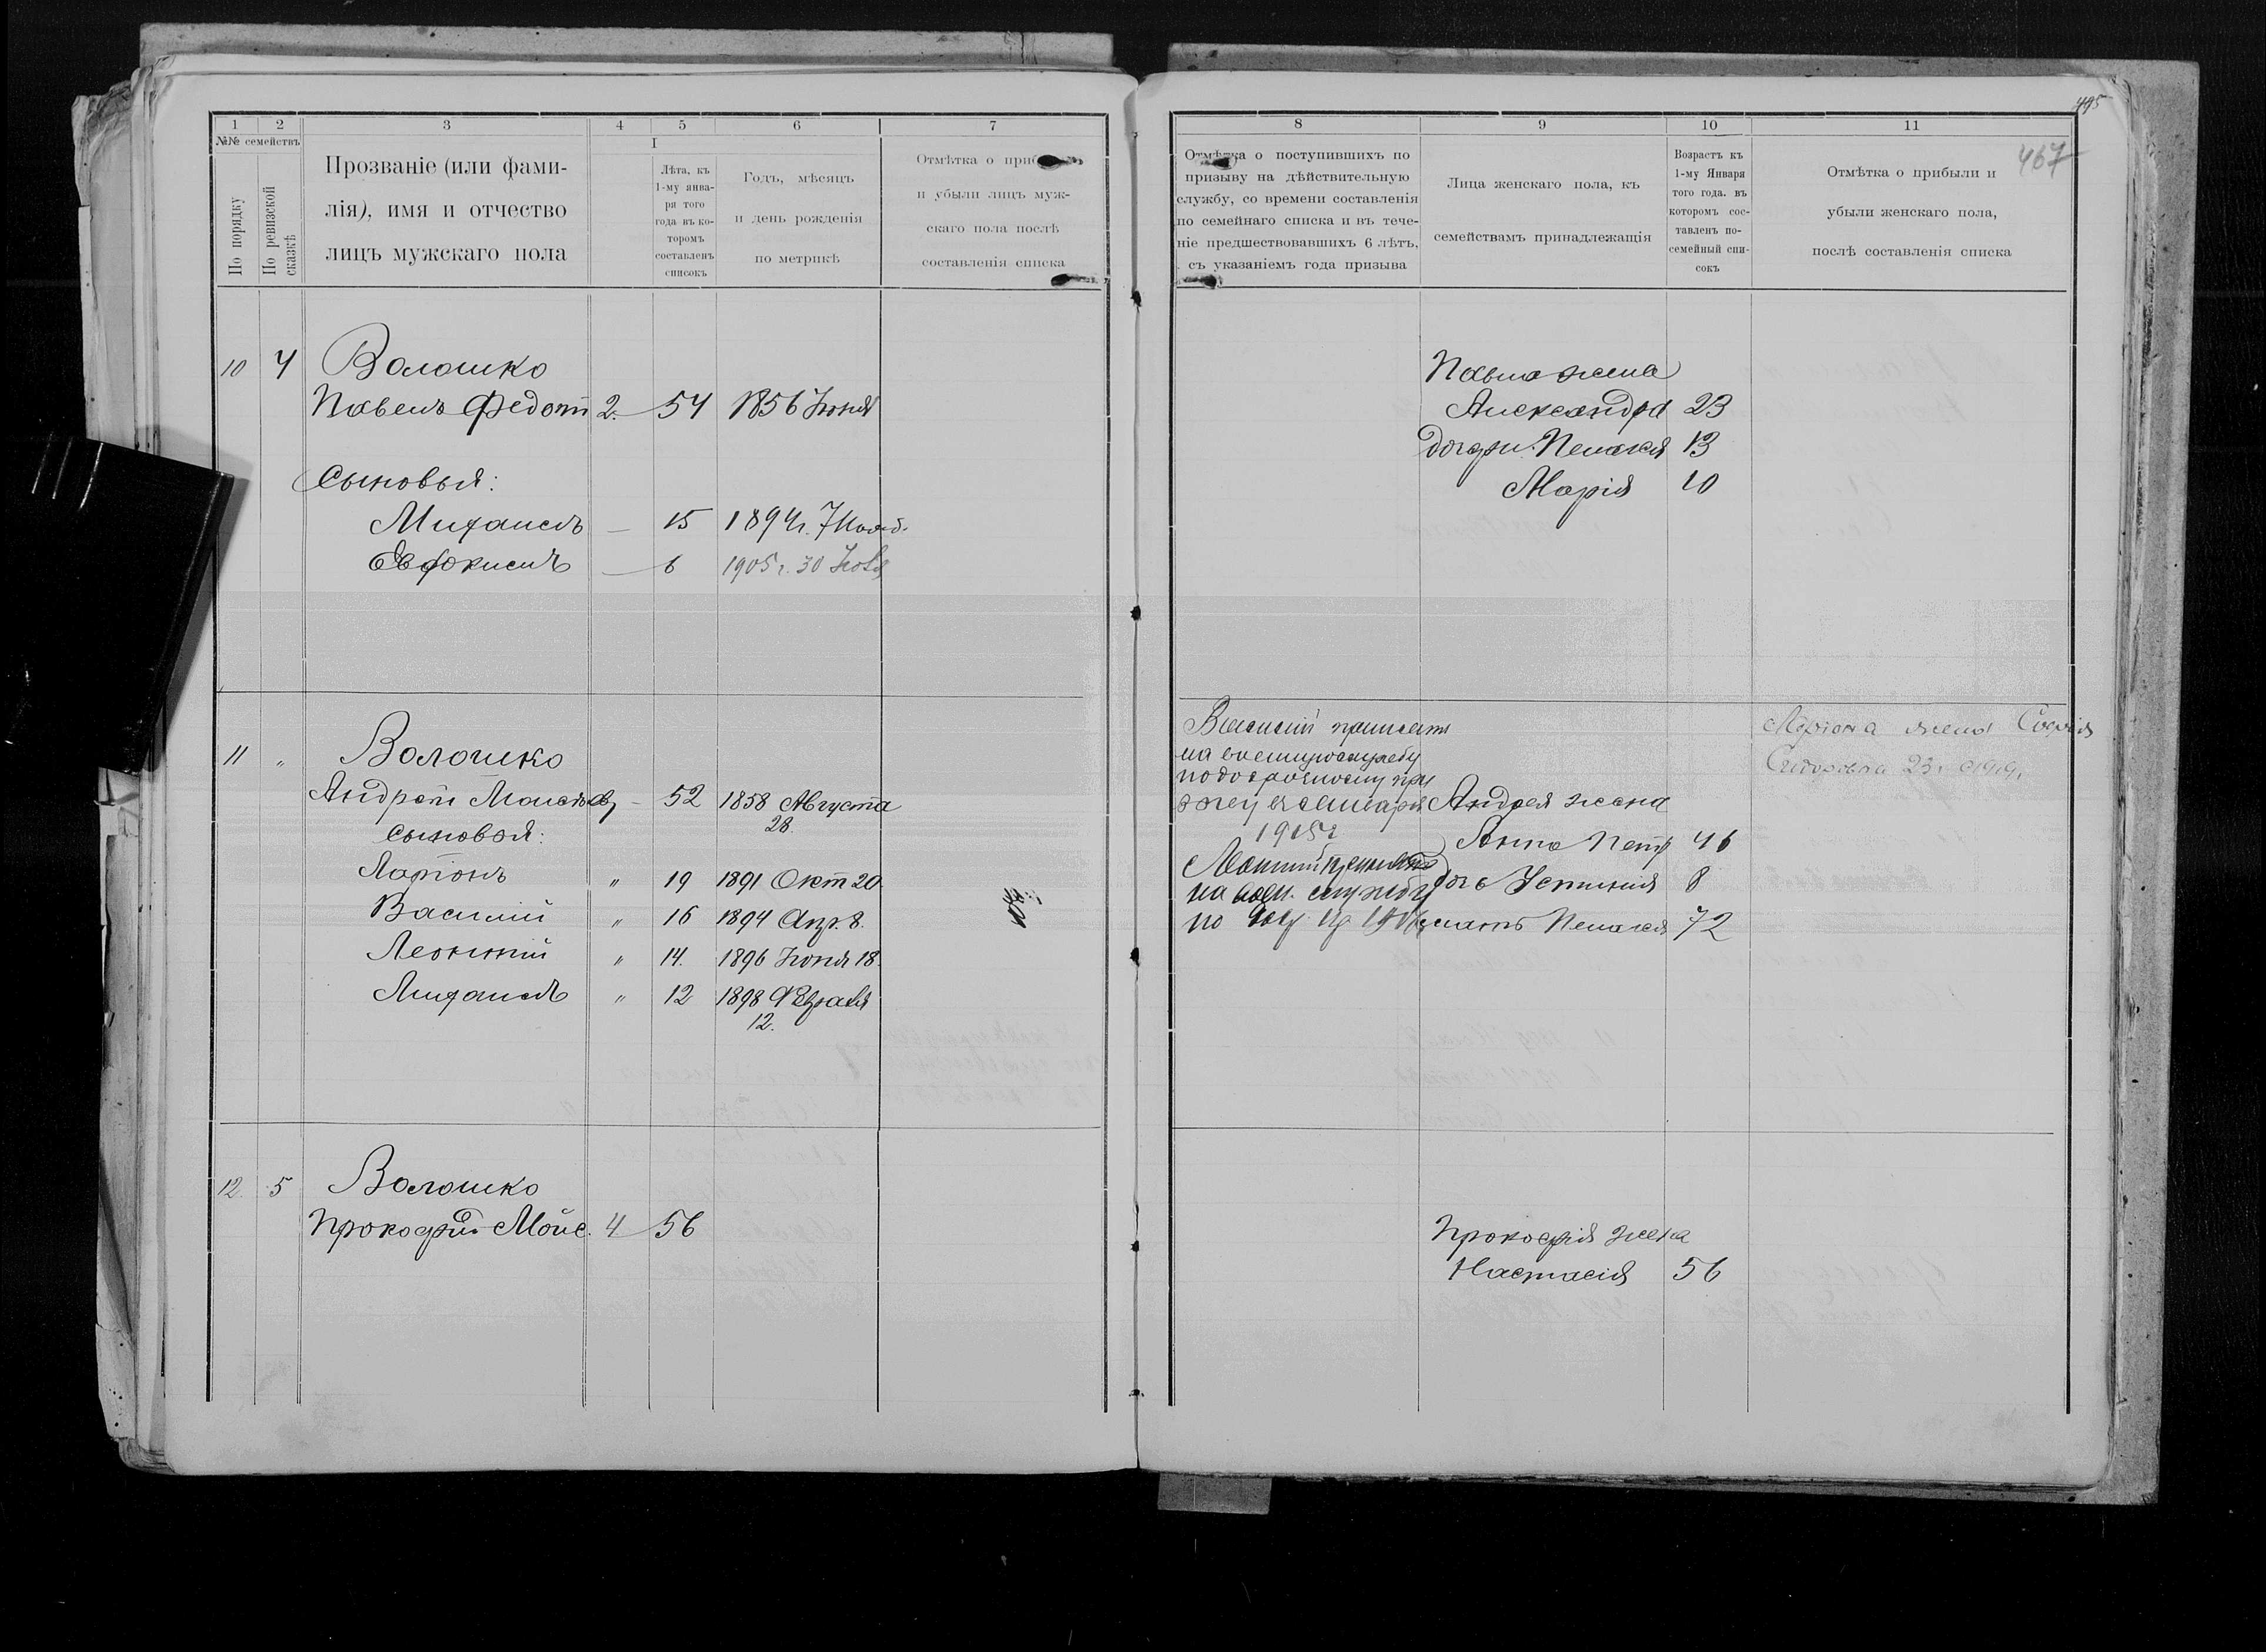 495
467
1 2 3 4 5 6 7
№№ семействъ
По порядку
По ревизской сказкѣ
Прозваніе (или фами-
лія), имя и отчество
лицъ мужскаго пола
I
Лѣта, къ
1-му янва-
ря того
года въ ко-
торомъ
составленъ
списокъ
Годъ, мѣсяцъ
и день рожденія
по метрикѣ
Отмѣтка о
и убыли лицъ муж-
скаго пола послѣ
составленія списка
8 9 10 11
Отмѣтка о поступившихъ по
призыву на дѣйствительную
службу, со времени составленія
по семейнаго списка и въ тече-
ніе предшествовавшихъ 6 лѣтъ,
съ указаніемъ года призыва
Лица женскаго пола, къ
семействамъ принадлежащія
Возрастъ къ
1-му Января
того года. въ
которомъ сос-
тавленъ по-
семейный спи-
сокъ
Отмѣтка о прибыли и
убыли женскаго пола,
послѣ составленія списка
10 4 Волошко
Павелъ Федот 2. 54 1856 Іюня
Сыновья:
Михаилъ — 15 1894 г. 7 Нояб.
Евфокисилъ — 6 1905 г. 30
Павла жена
Александра 23
дочери: Пелагея 13
Марія 10
11 " Волошко
Андрей Моисѣев — 52 1858 Августа
28.
сыновья:
Ларіонъ " 19 1891 Окт 20.
Василій " 16 1894 Апр. 8.
Леонтій " 14. 1896 Іюня 18.
Михаилъ " 12 1898 Февраля
12.
Василій принятъ
на военную службу
по досрочному при
зыву января
1915 г
принятъ
на воен. службу
по
Андрея жена
Анна Петр 46
дочь Устинія 8
мать Пелагея 72
Ларіона жена Софія
Сидоровна 23 г. 1919 г.
12. 5 Волошко
Прокофій Мойс. 4 56
Прокофія жена
Настасія 56